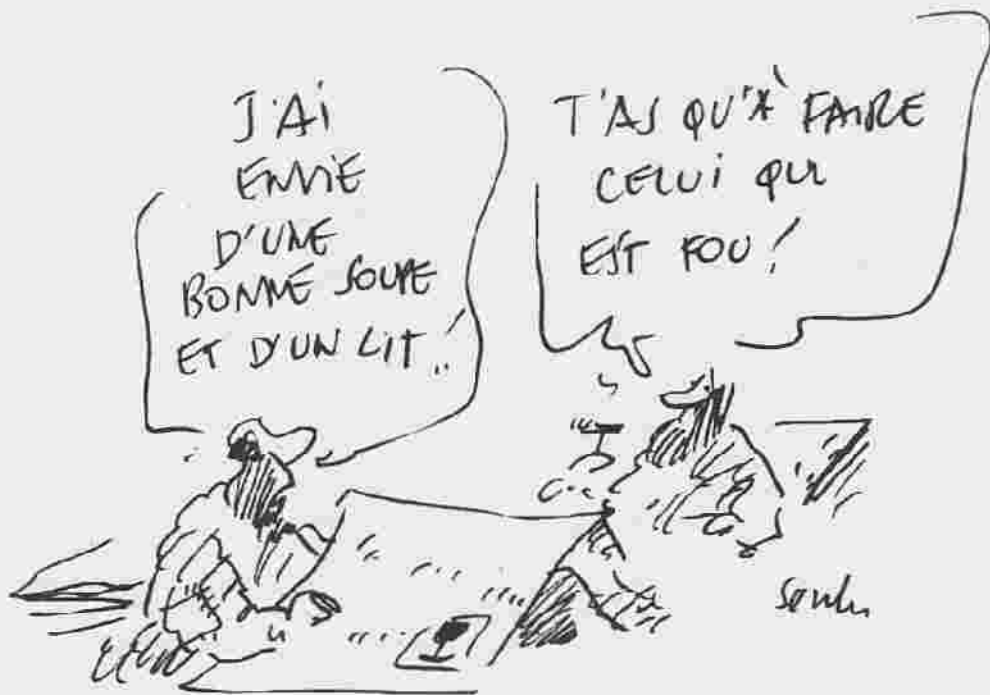 J'AI
ENVIE
D'UNE
BONNE SOUPE
ET D'UN LIT..!
T'AS QU'À FAIRE
CELUI QUI
EST FOU !